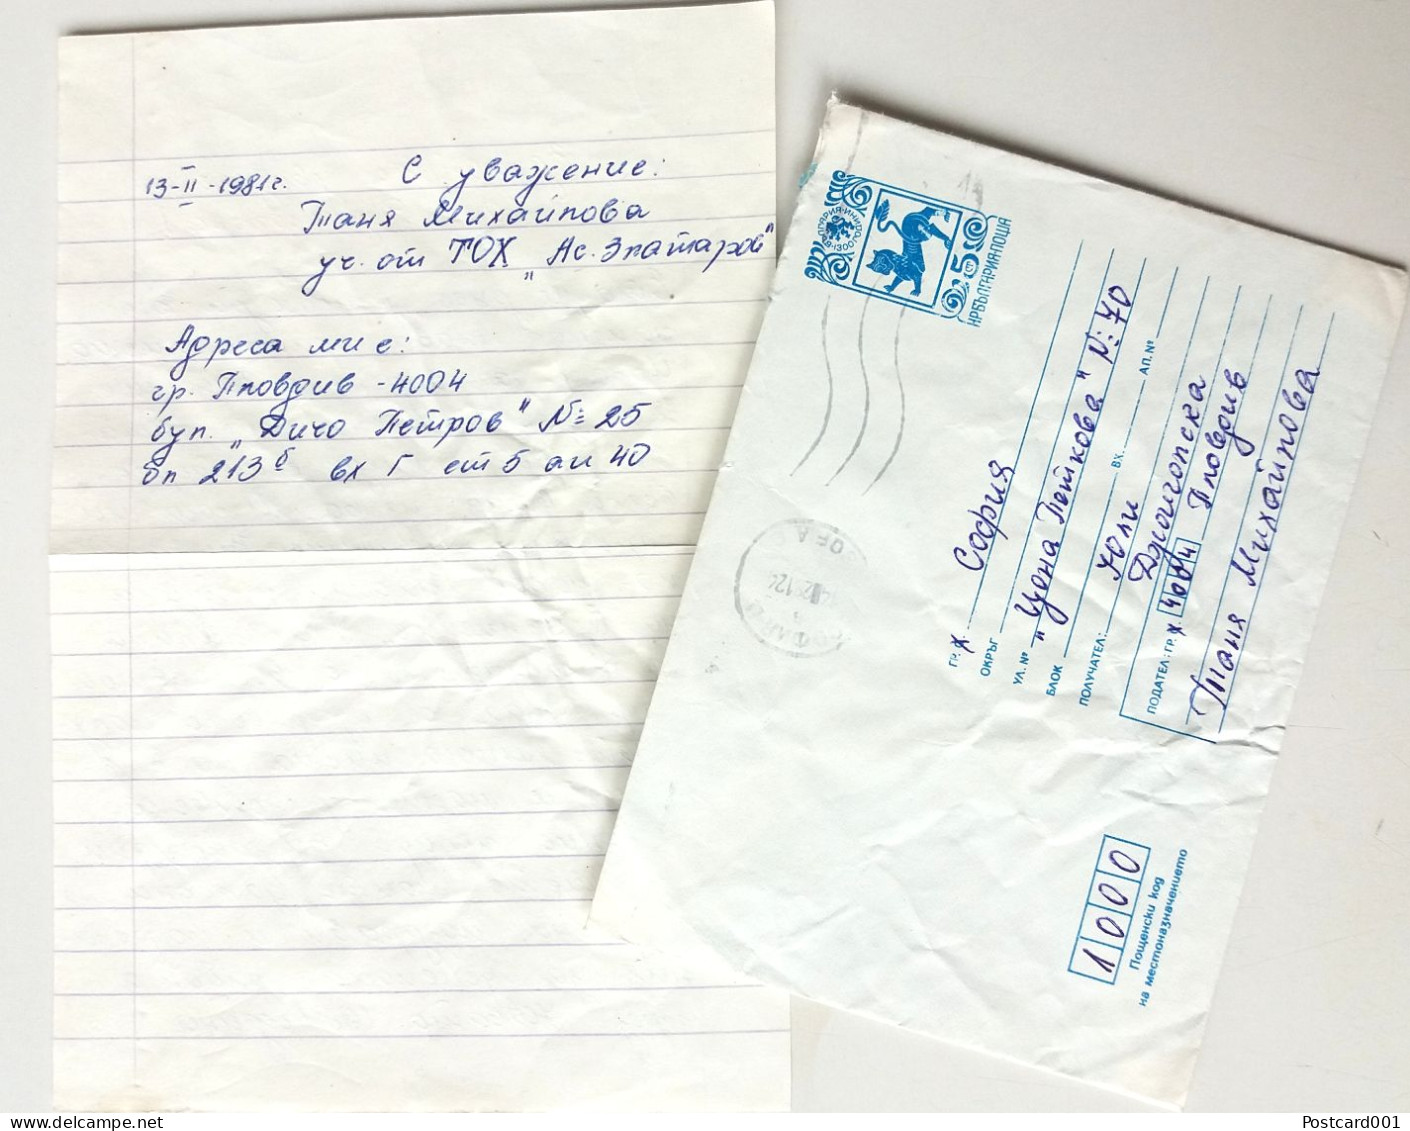 13-II-1981г.
С уважение:
Таня Михайлова
уч. от ТОХ „Ас. Златаров"
Адреса ми е:
гр. Пловдив - 4004
бул. „Дичо Петров" № 25
бл 213б вх Г ет 5 ап 40
БЪЛГАРИЯ
1300
5
НРБЪЛГАРИЯ·ПОЩА
ГР. Х. София
ОКРЪГ
УЛ. № „Цона Петкова" №: 70
БЛОК ВХ. АП. №
ПОЛУЧАТЕЛ: Юли
Джонгопска
ПОДАТЕЛ: ГР. Х. 4004 Пловдив
Таня Михайлова
1000
Пощенски код
на местоназначението
Postcard001